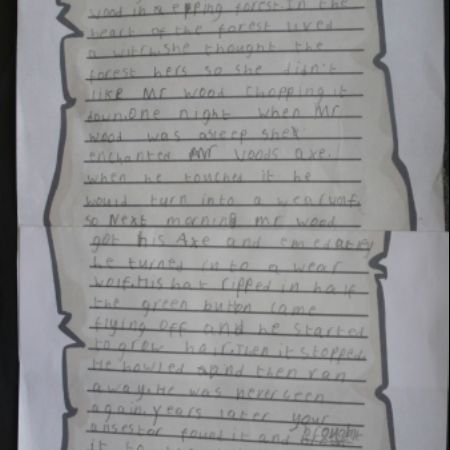 wood in a epping forest. In the
heart of the forest lived
a witch. she thought the
forest hers so she didn't
like Mr wood chopping it
down. One night when Mr
wood was asleep she
enchanted Mr woods axe.
when he touched it he
would turn into a wearwolf.
so Next morning Mr wood
got his Axe and emedatley
he turned in to a wear
wolf. His hat ripped in half
the green button came
flying off and he started
to grow hair. Then it stopped
He howled and then ran
away. He was never seen
again. years later your
ansestor found it and brought
it to